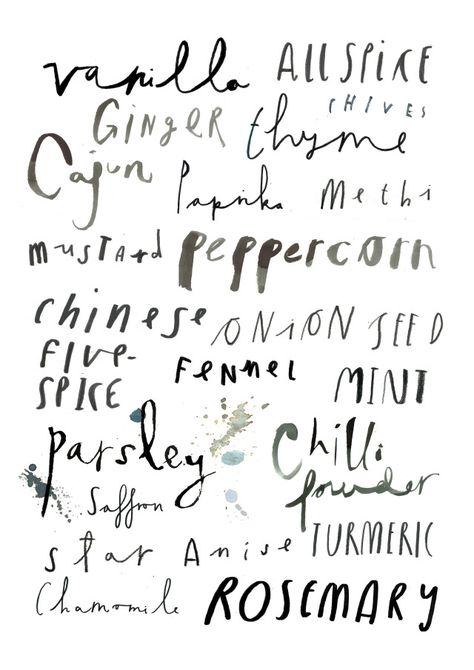 vanilla ALLSPICE
CHIVES
GINGER thyme
Cajun Paprika Methi
mUSTArd Peppercorn
chinese ONiON SEED
FIVE-
SPICE FeNNeL MINT
parsley Chilli
powder
Saffron
star Anise TURMERIC
Chamomile ROSEMARY